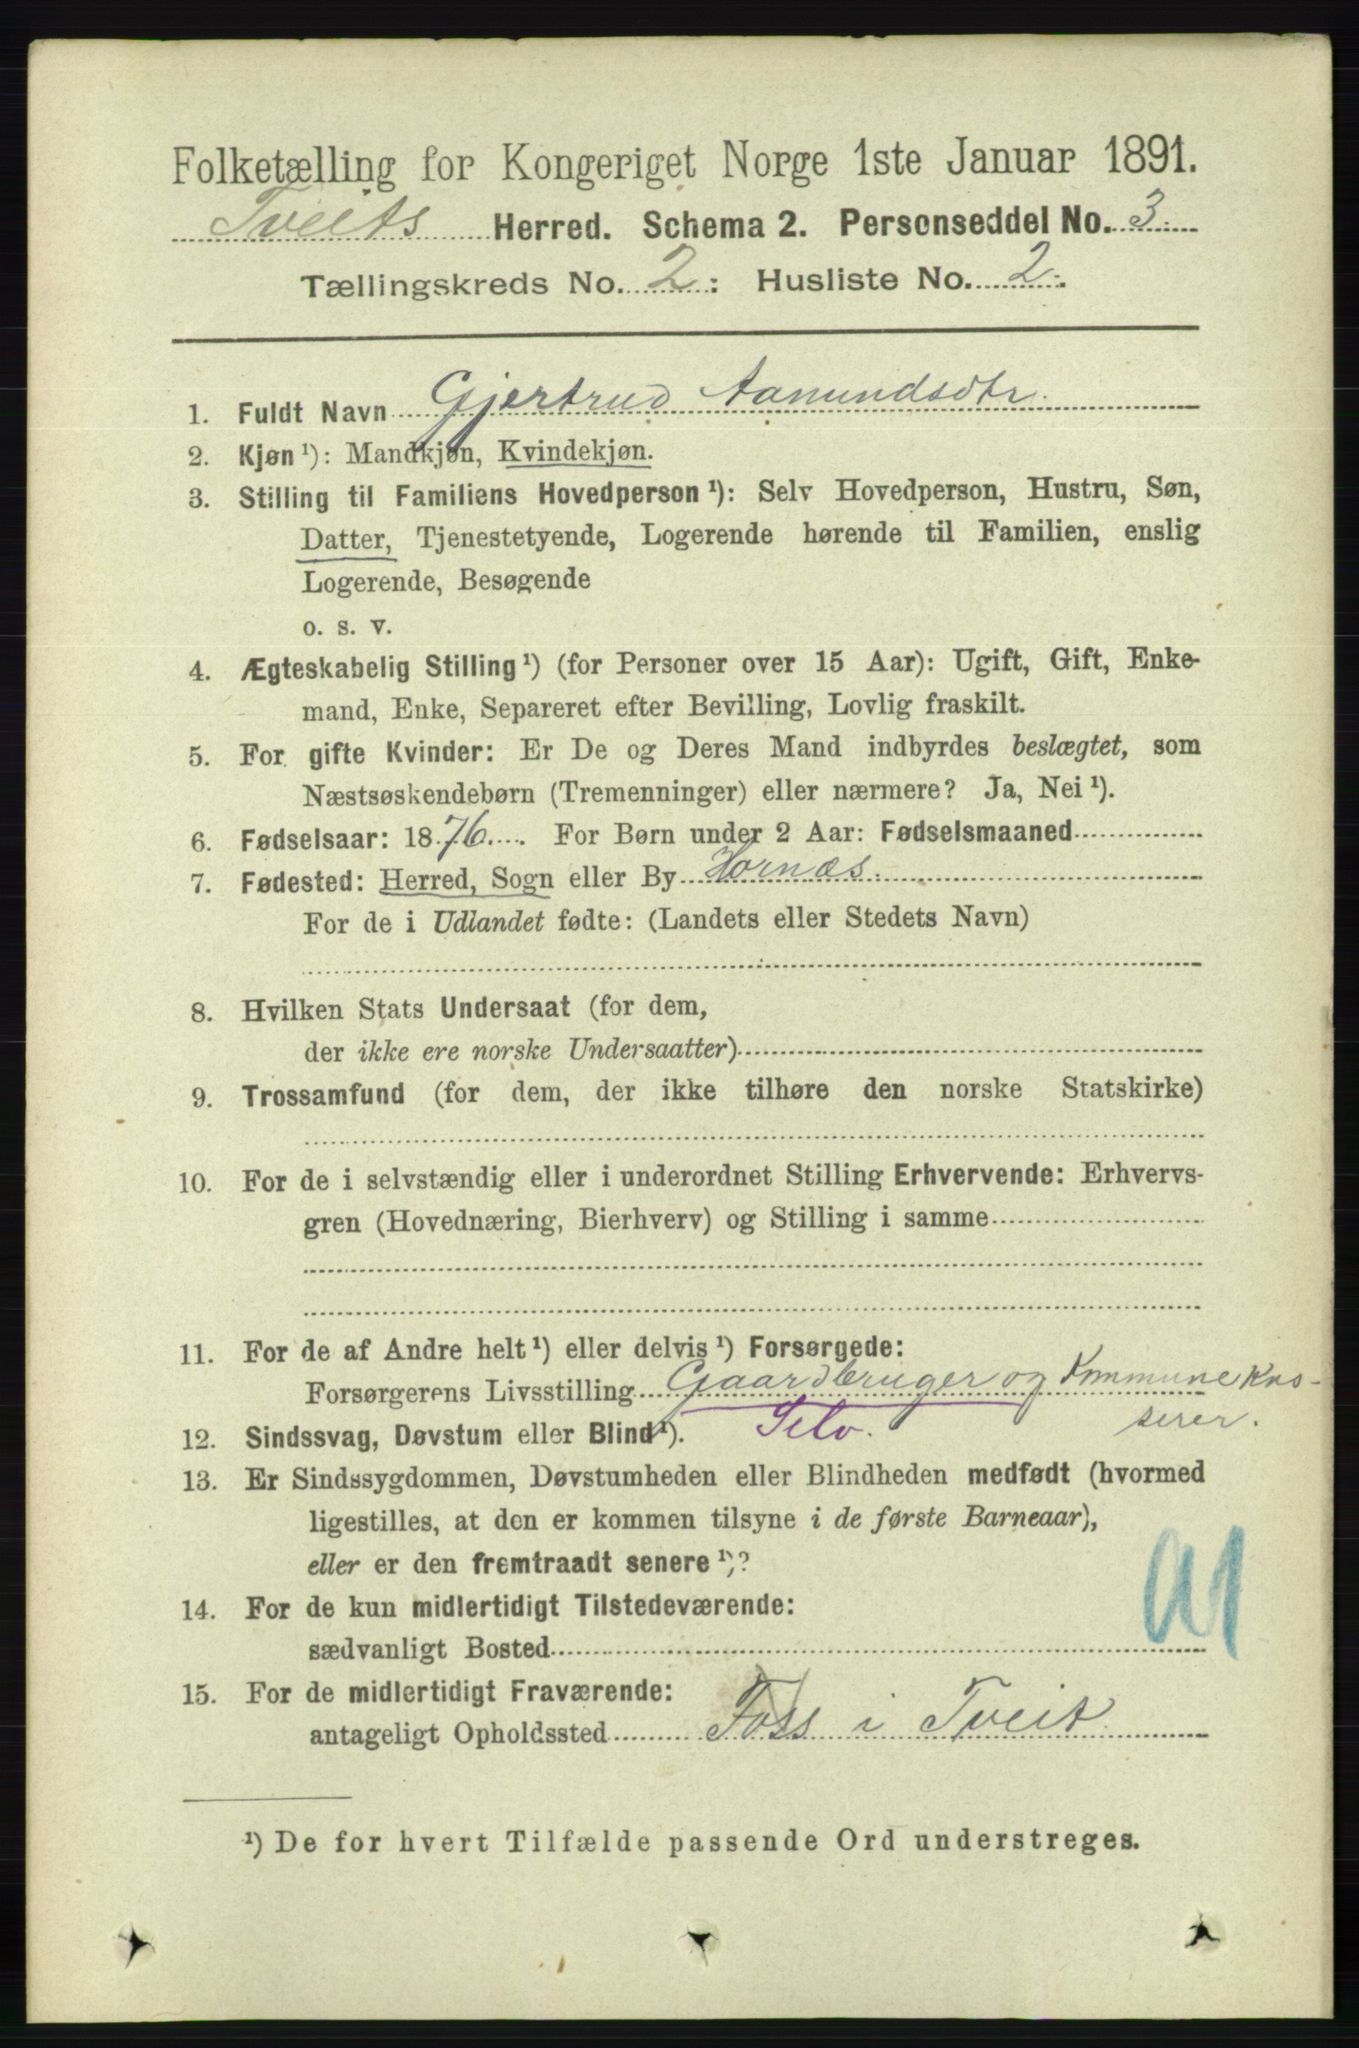 Folketælling for Kongeriget Norge 1ste Januar 1891.
Tveits Herred. Schema 2. Personseddel No. 3.
Tællingskreds No. 2: Husliste No. 2.
1. Fuldt Navn Gjertrud Aamundsdtr.
2. Kjøn ¹): Mandkjøn, Kvindekjøn.
3. Stilling til Familiens Hovedperson ¹): Selv Hovedperson, Hustru, Søn,
Datter, Tjenestetyende, Logerende hørende til Familien, enslig
Logerende, Besøgende
o. s. v.
4. Ægteskabelig Stilling ¹) (for Personer over 15 Aar): Ugift, Gift, Enke-
mand, Enke, Separeret efter Bevilling, Lovlig fraskilt.
5. For gifte Kvinder: Er De og Deres Mand indbyrdes beslægtet, som
Næstsøskendebørn (Tremenninger) eller nærmere? Ja, Nei ¹).
6. Fødselsaar: 1876. For Børn under 2 Aar: Fødselsmaaned
7. Fødested: Herred, Sogn eller By Hornæs.
For de i Udlandet fødte: (Landets eller Stedets Navn)
8. Hvilken Stats Undersaat (for dem,
der ikke ere norske Undersaatter)
9. Trossamfund (for dem, der ikke tilhøre den norske Statskirke)
10. For de i selvstændig eller i underordnet Stilling Erhvervende: Erhvervs-
gren (Hovednæring, Bierhverv) og Stilling i samme
11. For de af Andre helt ¹) eller delvis ¹) Forsørgede:
Forsørgerens Livsstilling Gaardbruger og Kommunekas-
serer.
12. Sindssvag, Døvstum eller Blind ¹). Selv.
13. Er Sindssygdommen, Døvstumheden eller Blindheden medfødt (hvormed
ligestilles, at den er kommen tilsyne i de første Barneaar),
eller er den fremtraadt senere ¹)?
14. For de kun midlertidigt Tilstedeværende:
sædvanligt Bosted
15. For de midlertidigt Fraværende:
antageligt Opholdssted Foss i Tveit
¹) De for hvert Tilfælde passende Ord understreges.